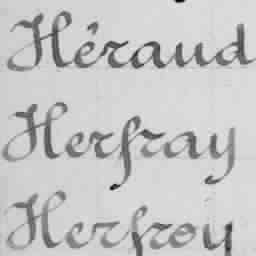 Héraud
Herfray
Herfroy